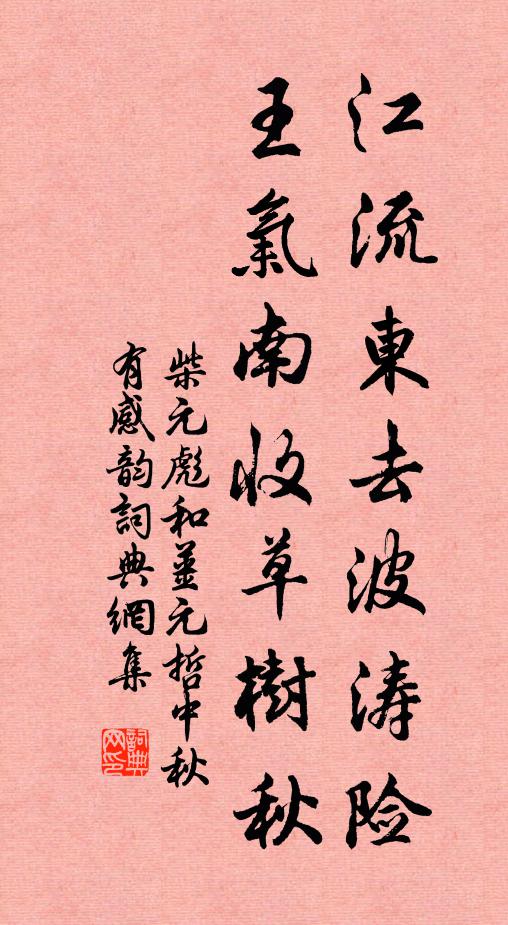 江流東去波涛险
王氣南收草樹秋
柴元彪和姜元哲中秋
有感韵詞典網集
詞典
网印